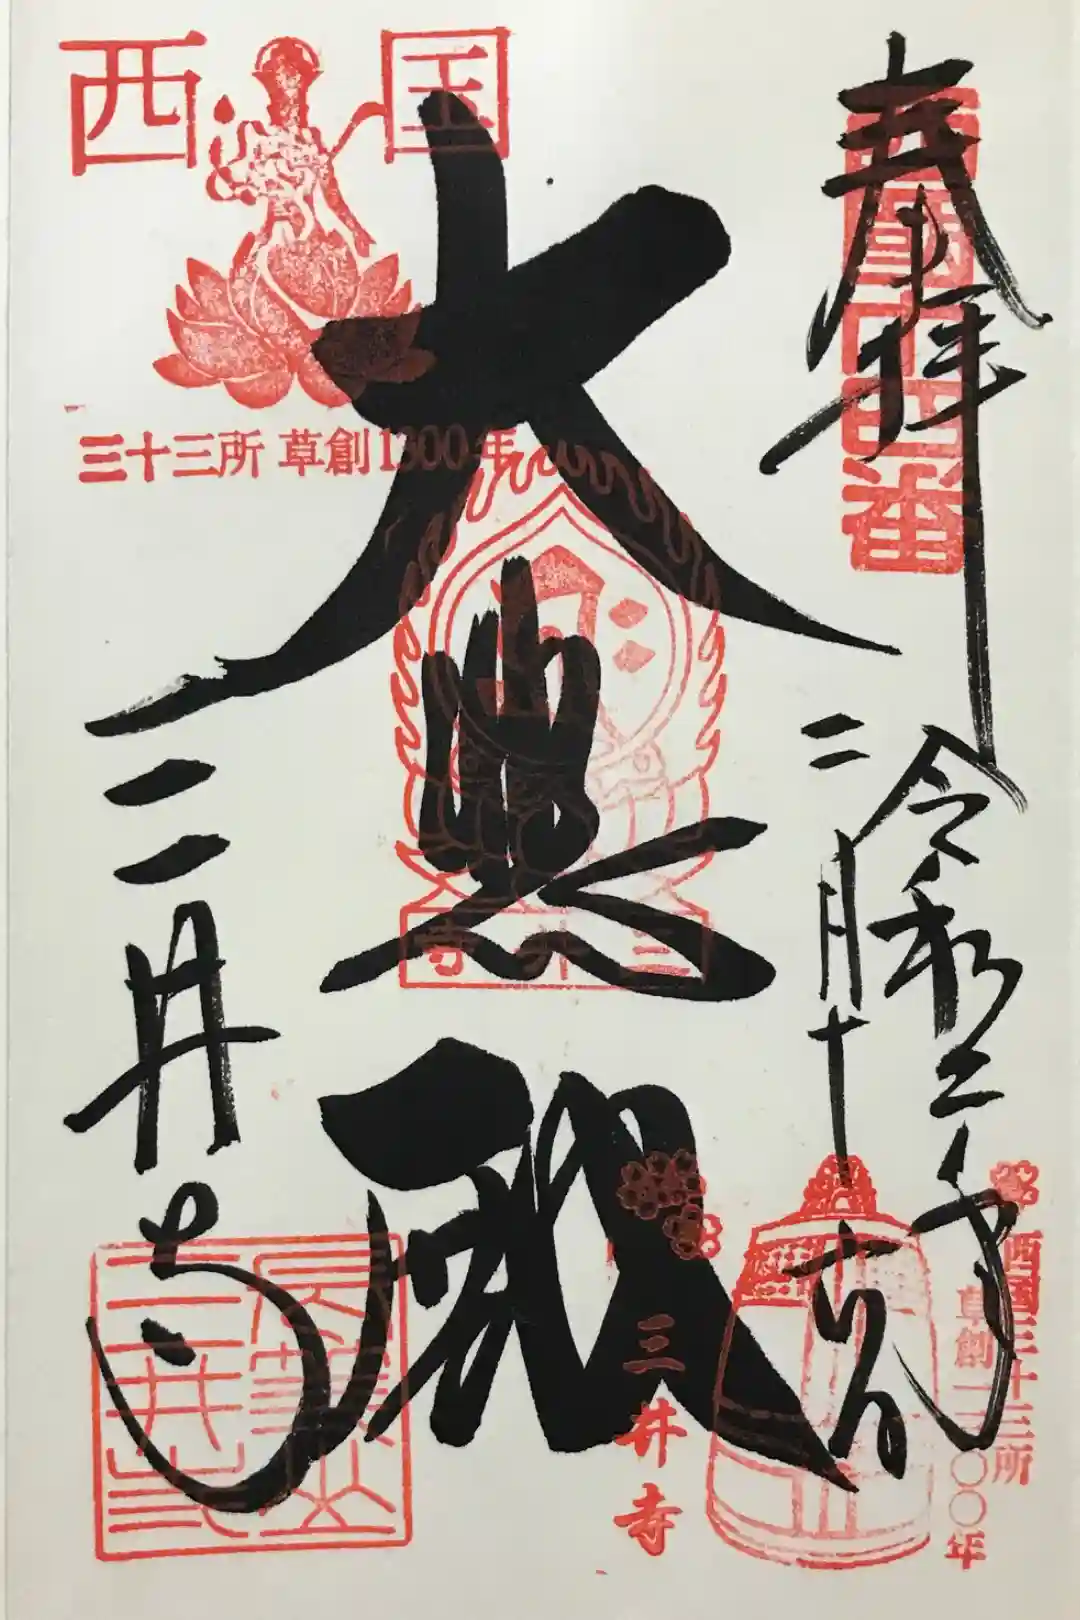 奉拝
西国十四番
令和二年
二月十六日
大悲殿
三井寺
西国
三十三所 草創1300年
三井寺
三井寺
西国三十三所
草創一三〇〇年